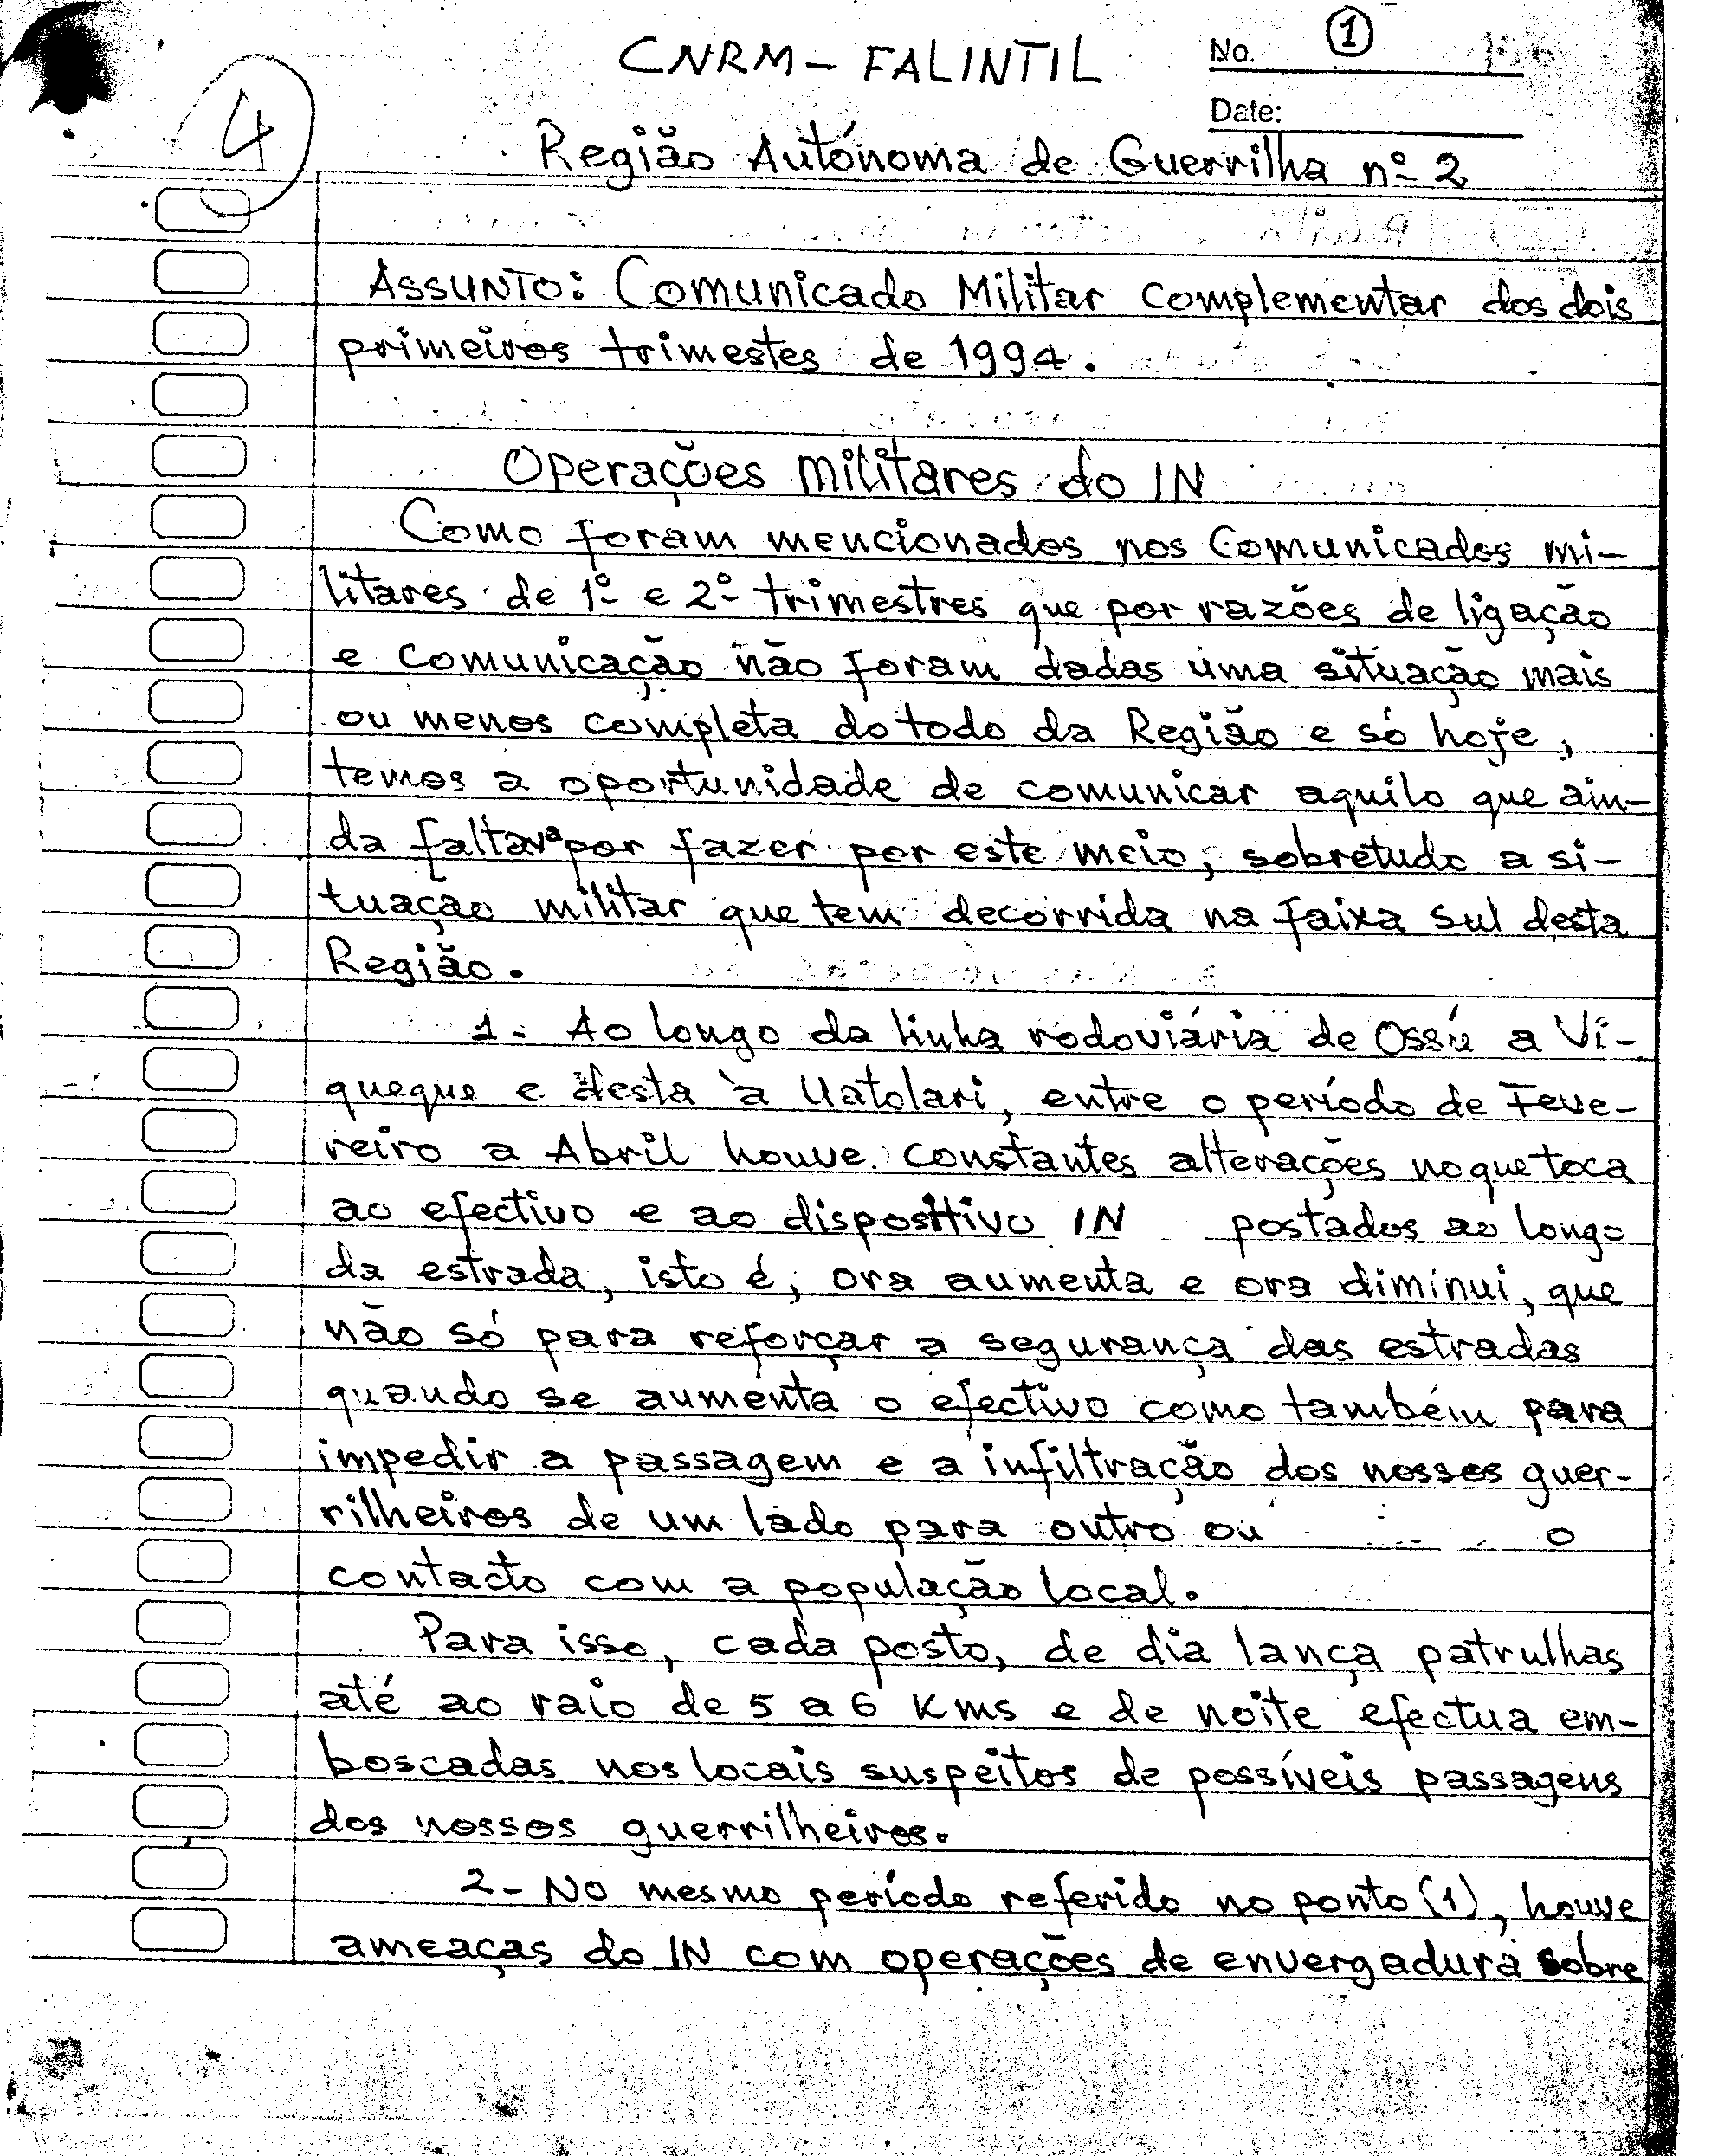 CNRM - FALINTIL
No. 1
Date:
4
Região Autónoma de Guerrilha nº 2
ASSUNTO: Comunicado Militar Complementar dos dois
primeiros trimestes de 1994.
Operações militares do IN
Como foram mencionados nos Comunicados mi-
litares de 1º e 2º trimestres que por razões de ligação
e comunicação não foram dadas uma situação mais
ou menos completa do todo da Região e só hoje,
temos a oportunidade de comunicar aquilo que ain-
da faltava por fazer por este meio, sobretudo a si-
tuação militar que tem decorrida na faixa sul desta
Região.
1 - Ao longo da linha rodoviária de Ossú a Vi-
queque e desta à Uatolari, entre o período de Feve-
reiro a Abril houve constantes alterações no que toca
ao efectivo e ao dispositivo IN postados ao longo
da estrada, isto é, ora aumenta e ora diminui, que
não só para reforçar a segurança das estradas
quando se aumenta o efectivo como também para
impedir a passagem e a infiltração dos nossos guer-
rilheiros de um lado para outro ou o
contacto com a população local.
Para isso, cada posto, de dia lança patrulhas
até ao raio de 5 a 6 Kms e de noite efectua em-
boscadas nos locais suspeitos de possíveis passagens
dos nossos guerrilheiros.
2 - No mesmo período referido no ponto (1), houve
ameaças do IN com operações de envergadura sobre